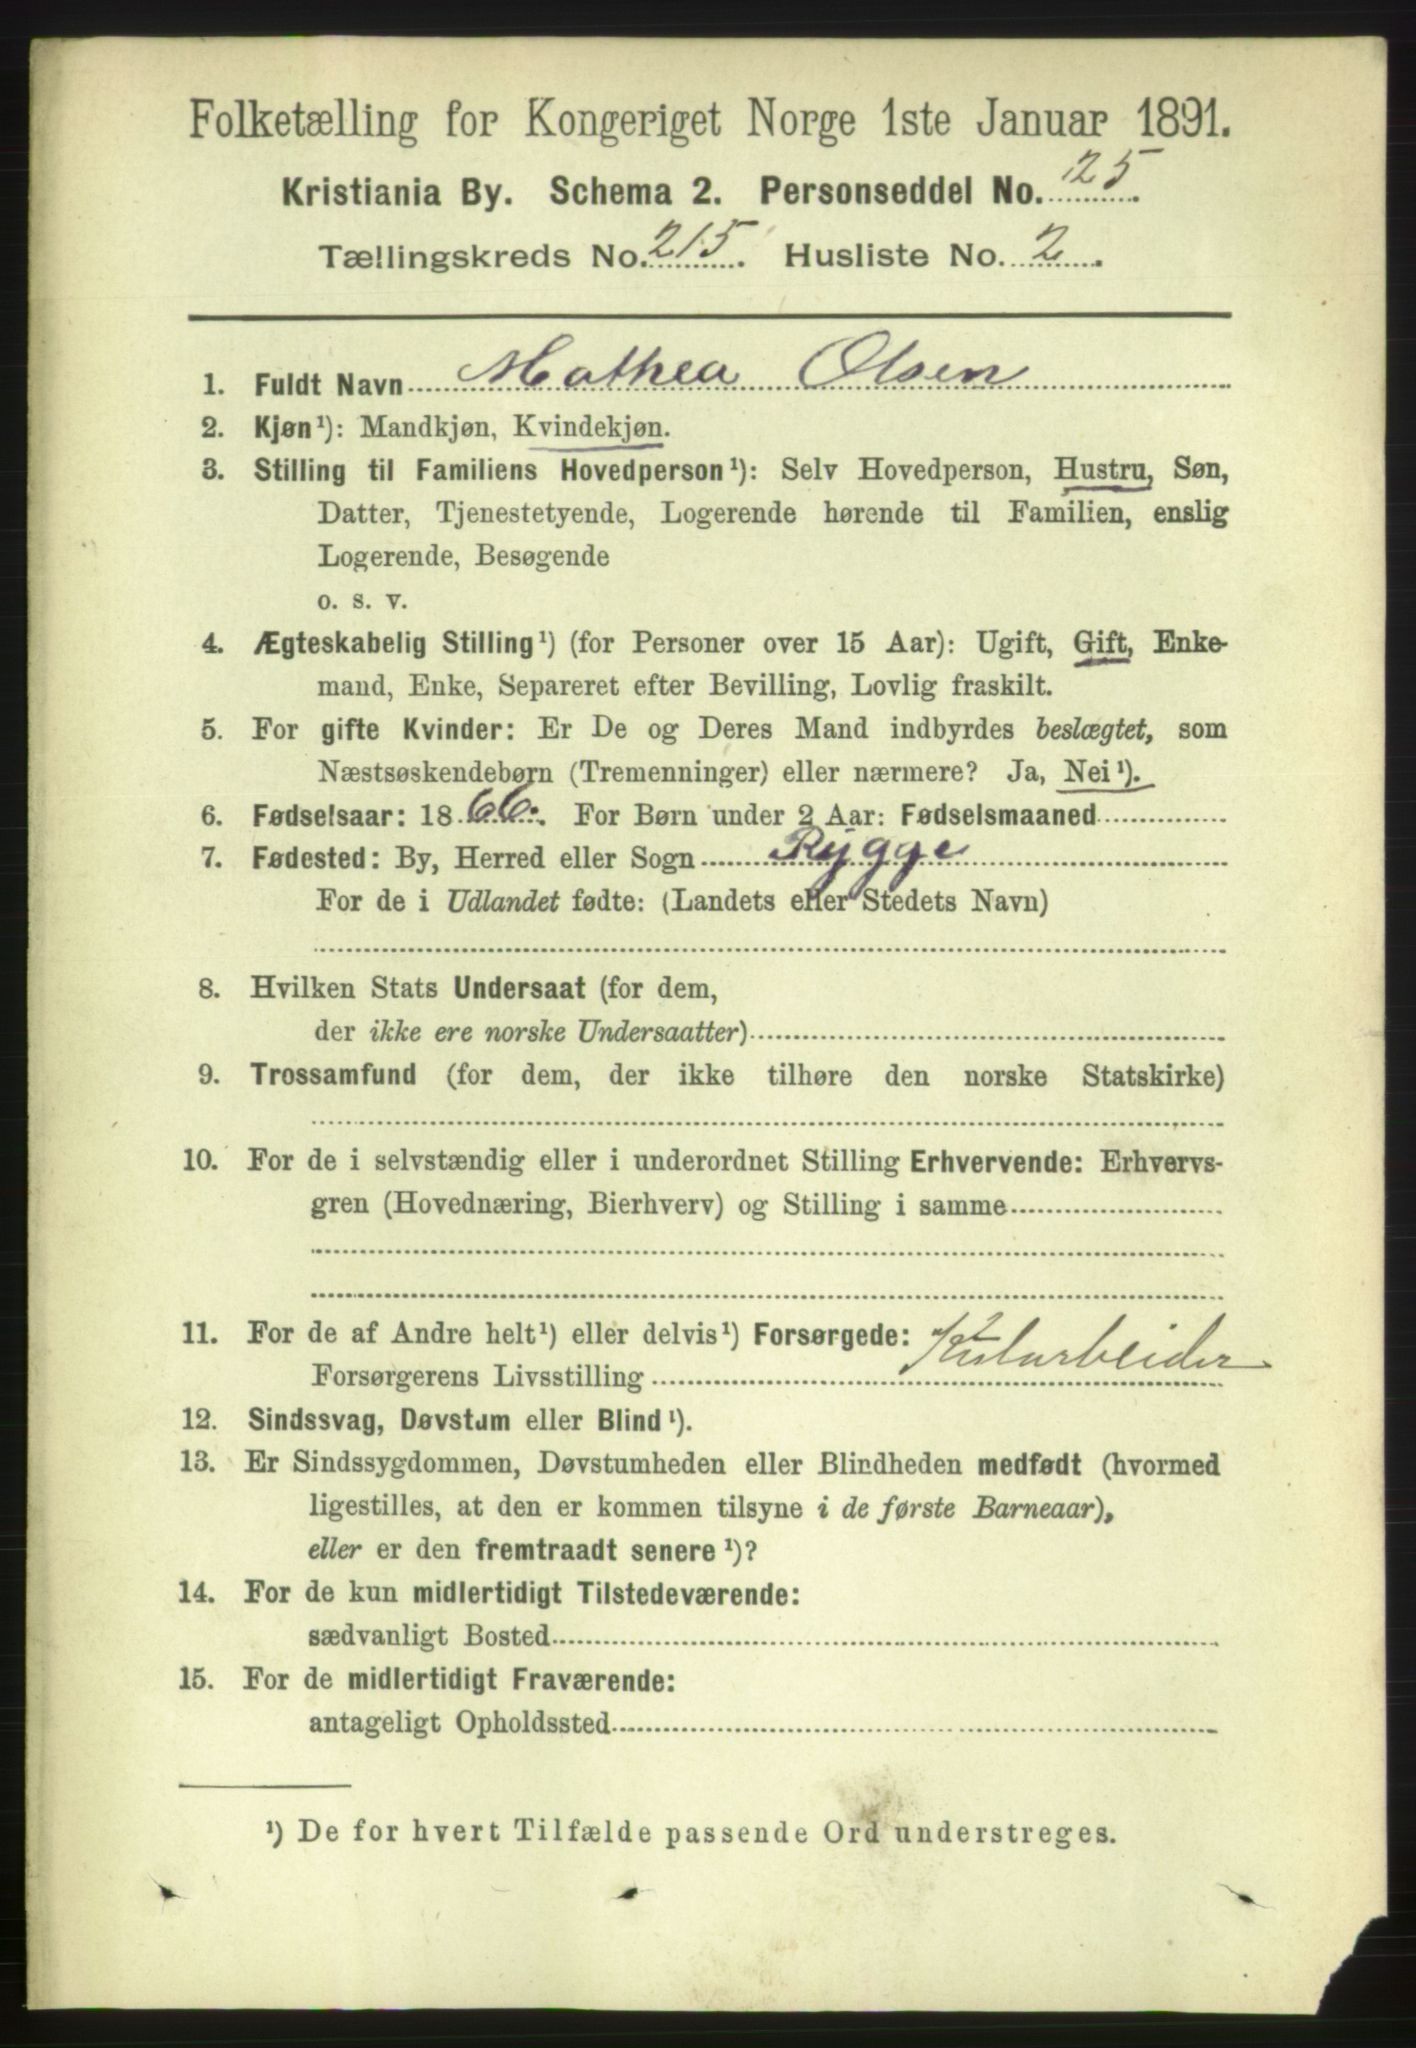 Folketælling for Kongeriget Norge 1ste Januar 1891.
Kristiania By. Schema 2. Personseddel No. 25
Tællingskreds No. 215. Husliste No. 2
1. Fuldt Navn Mathea Olsen
2. Kjøn¹): Mandkjøn, Kvindekjøn.
3. Stilling til Familiens Hovedperson¹): Selv Hovedperson, Hustru, Søn,
Datter, Tjenestetyende, Logerende hørende til Familien, enslig
Logerende, Besøgende
o. s. v.
4. Ægteskabelig Stilling¹) (for Personer over 15 Aar): Ugift, Gift, Enke-
mand, Enke, Separeret efter Bevilling, Lovlig fraskilt.
5. For gifte Kvinder: Er De og Deres Mand indbyrdes beslægtet, som
Næstsøskendebørn (Tremenninger) eller nærmere? Ja, Nei¹).
6. Fødselsaar: 1866. For Børn under 2 Aar: Fødselsmaaned
7. Fødested: By, Herred eller Sogn Rygge
For de i Udlandet fødte: (Landets eller Stedets Navn)
8. Hvilken Stats Undersaat (for dem,
der ikke ere norske Undersaatter)
9. Trossamfund (for dem, der ikke tilhøre den norske Statskirke)
10. For de i selvstændig eller i underordnet Stilling Erhvervende: Erhvervs-
gren (Hovednæring, Bierhverv) og Stilling i samme
11. For de af Andre helt¹) eller delvis¹) Forsørgede:
Forsørgerens Livsstilling
12. Sindssvag, Døvstum eller Blind¹).
13. Er Sindssygdommen, Døvstumheden eller Blindheden medfødt (hvormed
ligestilles, at den er kommen tilsyne i de første Barneaar),
eller er den fremtraadt senere¹)?
14. For de kun midlertidigt Tilstedeværende:
sædvanligt Bosted
15. For de midlertidigt Fraværende:
antageligt Opholdssted
¹) De for hvert Tilfælde passende Ord understreges.